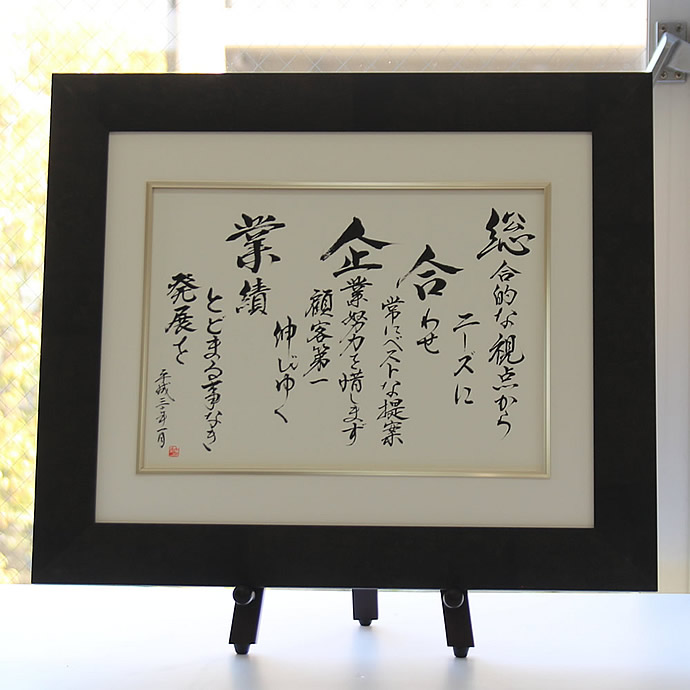 総合的な視点から
ニーズに
合わせ
常にベストな提案
企業努力を惜しまず
顧客第一
伸びゆく
業績
とどまる事なき
発展を
平成三十年一月